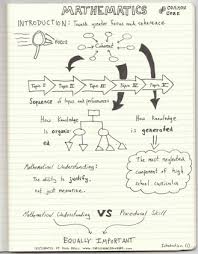 MATHEMATICS
# COMMON CORE
INTRODUCTION: Towards greater focus and coherence
FOCUS
Coherent
Topic I
Topic II
Topic III
Topic IV
Topic V
Sequence of topics and performances
How Knowledge is organized
How Knowledge is generated
Mathematical Understanding:
The ability to justify,
not just memorize.
The most neglected
component of High
school curriculum
Mathematical Understanding VS Procedural Skill
EQUALLY IMPORTANT
Introduction (1)